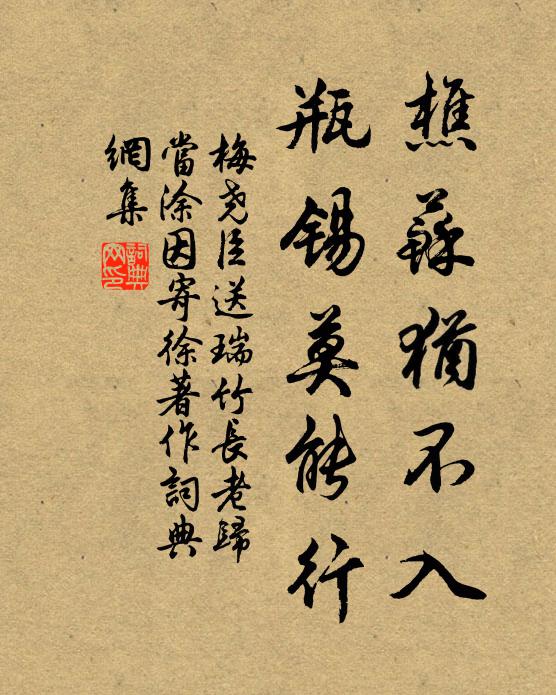 樵蘇猶不入
瓶錫莫能行
梅堯臣送瑞竹長老歸
當涂因寄徐著作詞典
網集
詞典網印